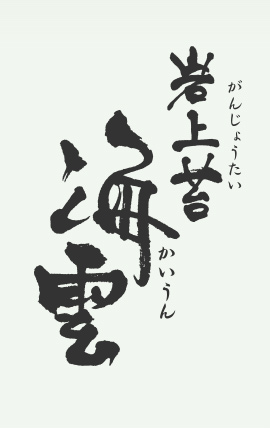 岩上苔
がんじょうたい
海雲
かいうん